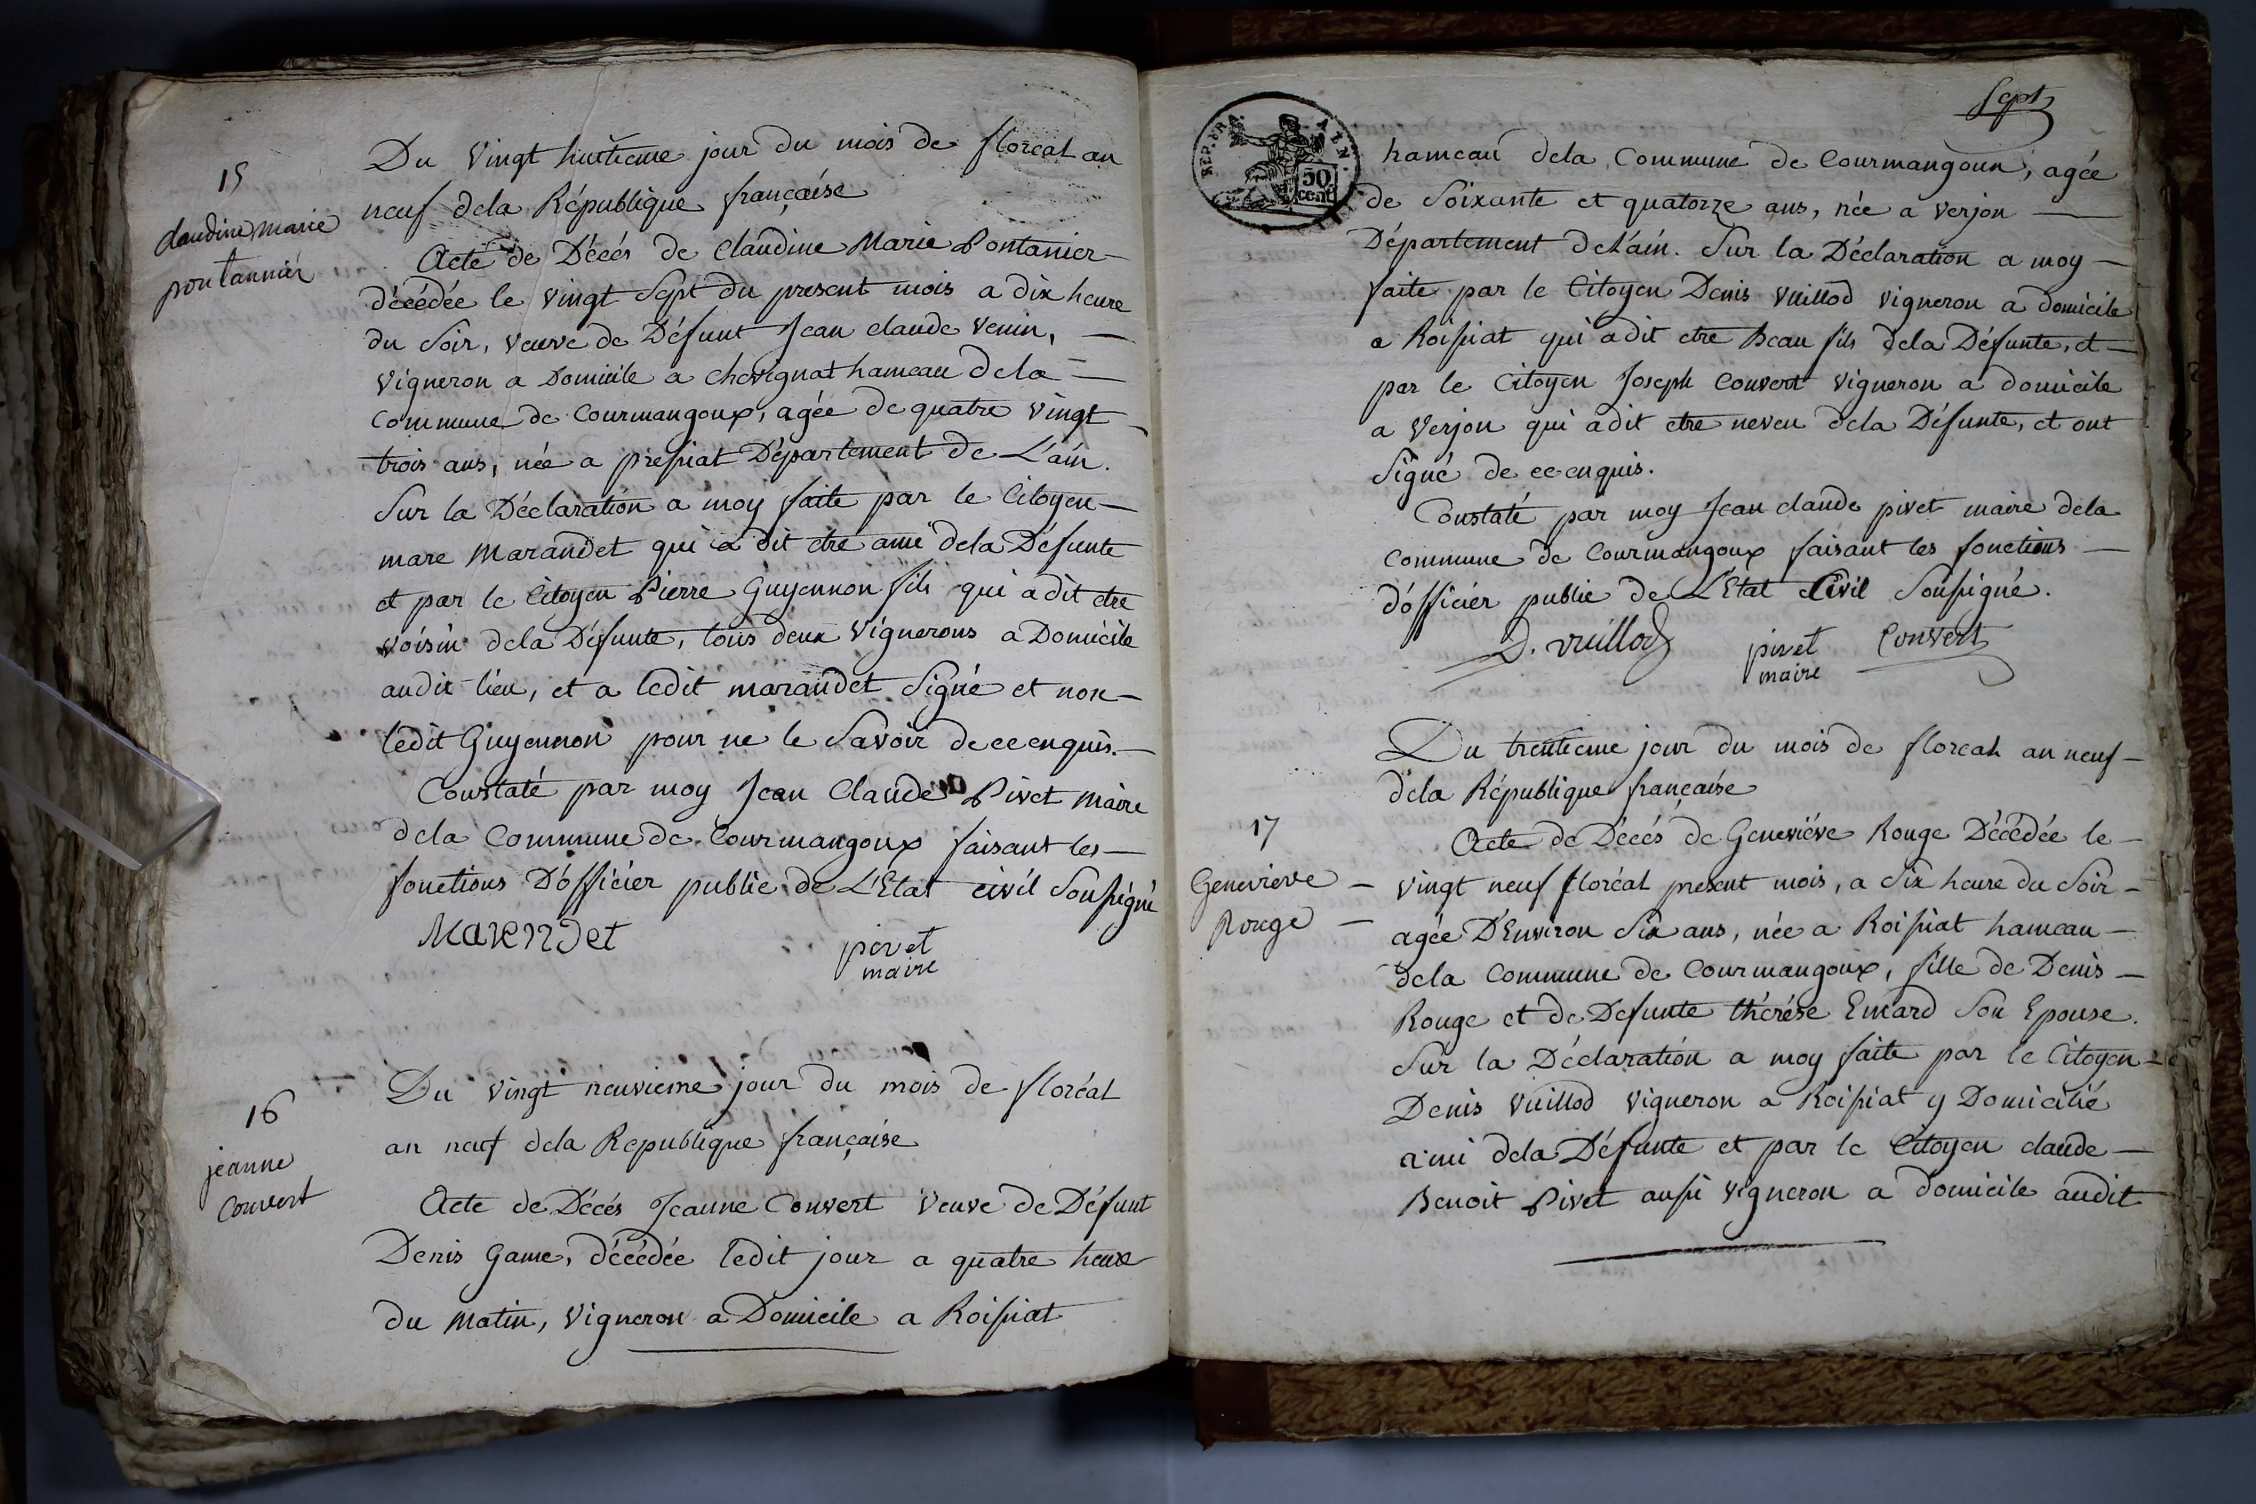 15
claudine marie
pontannier
Du vingt huitieme jour du mois de floreal an
neuf dela République françaíse
Acte de Décés de Claudine Marie Pontanier
décédée le vingt Sept du present mois a dix heure
du Soir, veuve de Défunt Jean claude venin,
vigneron a Domicile a chevignat hameau dela
Commune de Courmangoux, agée de quatre vingt
trois ans, née a presiat Département de L'aín.
Sur la Déclaratíon a moy faite par le Citoyen
marc Marandet qui a dit etre ami dela Défunte
et par le Citoyen Pierre Guyennon fils qui a dit etre
voisin dela Défunte, tous deux vignerons a Domicile
audit lieu, et a ledit marandet Signé et non
ledit Guyennon pour ne le Savoir de ce enquis.
Constaté par moy Jean Claude Pivet Maire
dela Commune de Courmangoux faisant les
fonctions D'officier public de L'Etat civil Soussigné
Marendet
pivet
maire
16
jeanne
Convert
Du vingt neuvieme jour du mois de floréal
an neuf dela Republique française
Acte de Décés Jeanne Convert veuve de Défunt
Denis Game, décédée ledit jour a quatre heure
du Matin, vigneron a Domicile a Roissiat
Sept
REP. FRA.
50
cent
hameau dela Commune de Courmangoun, agée
de Soixante et quatorze ans, née a verjon
Département de L'aín. Sur la Déclaration a moy
faite par le Citoyen Denis vuillod vigneron a domicile
a Roissiat qui a dit etre Beau fils dela Défunte, et
par le Citoyen Joseph Convert vigneron a domicile
a Verjon qui a dit etre neveu dela Défunte, et ont
Signé de ce enquis.
Constaté par moy Jean claude pivet maire dela
commune de Courmangoux faisant les fonctions
d'officier public de L'Etat Civil Soussigné.
D. vuillod
pivet
maire
Convert
Du trentieme jour du mois de floreal an neuf
dela République françaíse
17
Genevieve
Rouge
Acte de Décés de Geneviéve Rouge Décédée le
vingt neuf floréal present mois, a Six heure du Soir
agée D'Environ Six ans, née a Roissiat hameau
dela Commune de Courmangoux, fille de Denis
Rouge et de Defunte thérése Emard Son Epouse.
Sur la Déclaratíon a moy faite par le Citoyen
Denis vuillod vigneron a Roissiat y Domicilié
ami dela Défunte et par le Citoyen claude
Benoit Pivet aussi vigneron a domicile audit